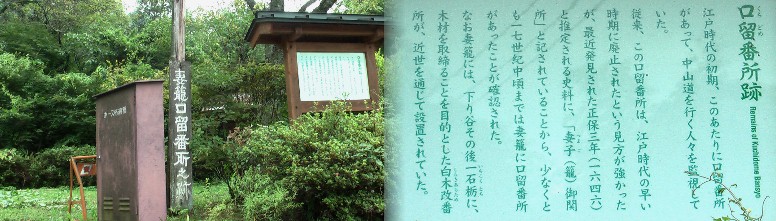 妻籠口留番所之跡
口留番所跡
くちどめ
Remains of Kuchidome Bansyo
江戸時代の初期、このあたりに口留番所
があって、中山道を行く人々を監視して
いた。
従来、この口留番所は、江戸時代の早い
時期に廃止されたという見方が強かった
が、最近発見された正保三年(一六四六)
と推定される史料に、「妻子(籠)御関
所」と記されていることから、少なくと
も一七世紀中頃までは妻籠に口留番所
があったことが確認された。
なお妻籠には、下り谷その後一石栃に、
木材を取締ることを目的とした白木改番
所が、近世を通じて設置されていた。